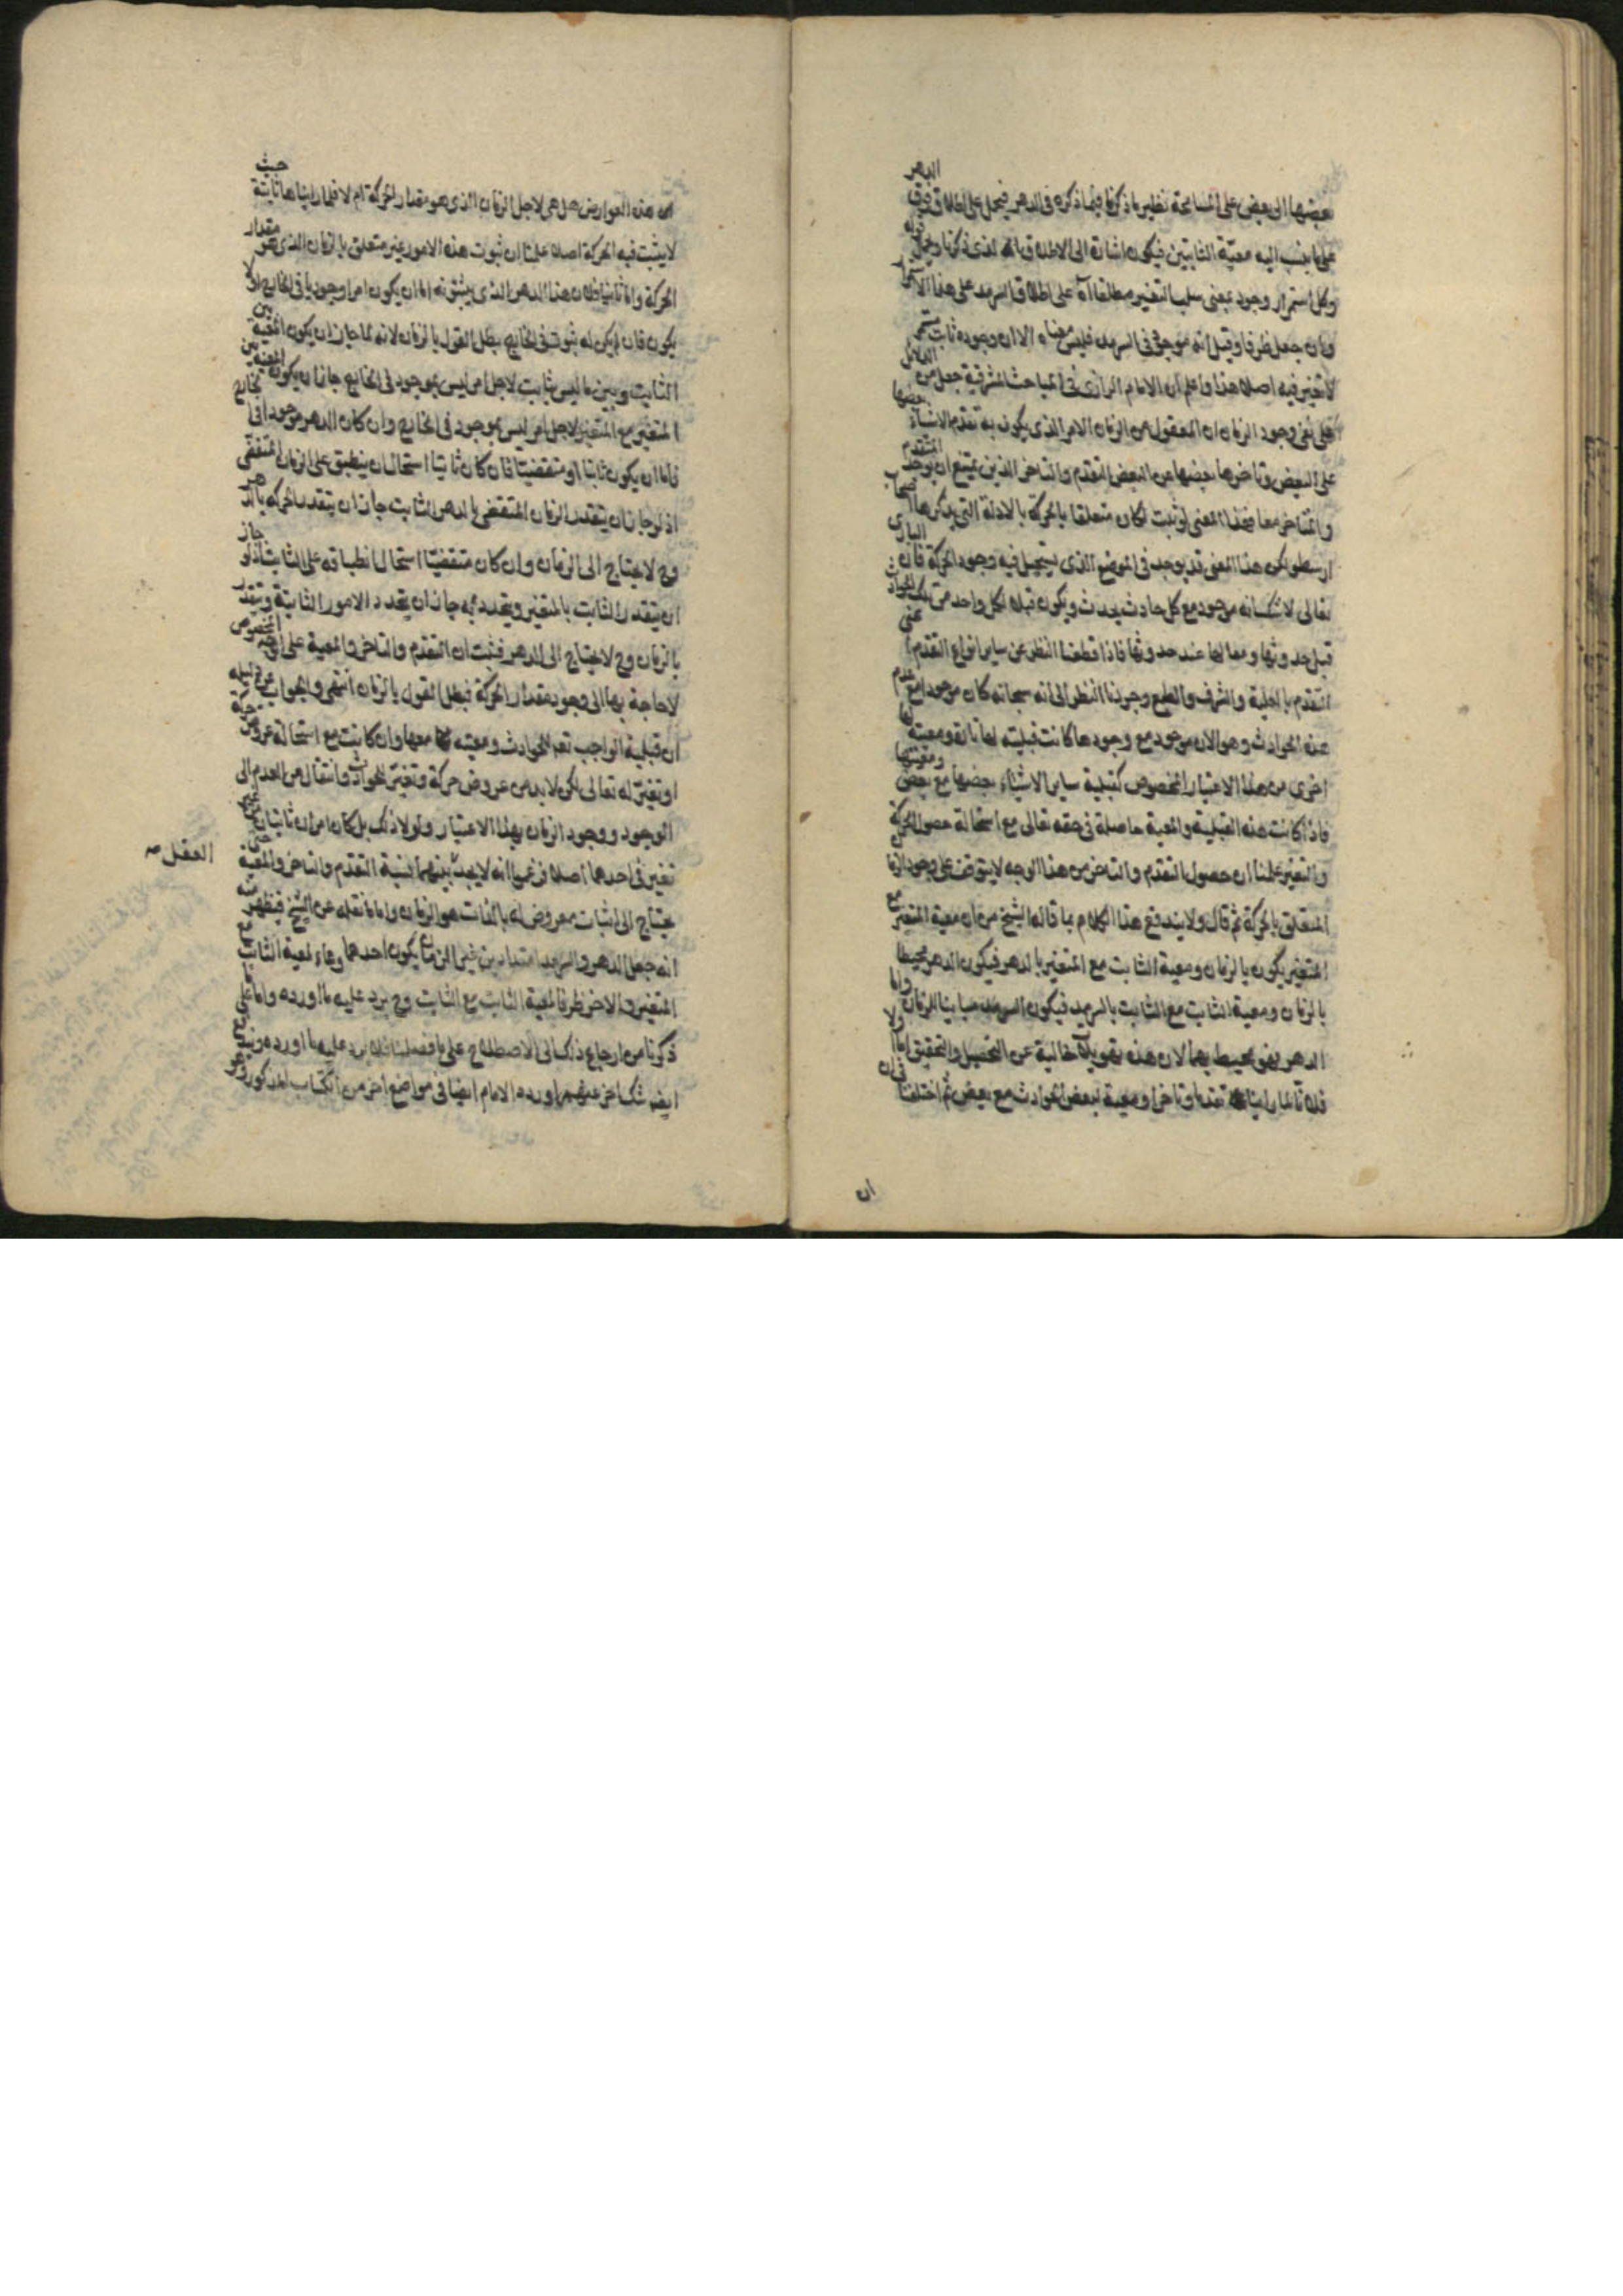 بعضها الى بعض على المسامحة نظير ما ذكرنا فيما ذكره فى الدهر فيحمل على اطلاق فوق الدهر
على ما ينسب اليه معيّة الثابتين فيكون اشارة الى الاطلاق الذى ذكرنا ويحمل قوله
وكل استمرار وجود بمعنى سلب التغير مطلقا آه على اطلاق السرمد على هذا الاستمرار
وان جعل ظرفا وقيل انه موجود فى السرمد فليس معناه الا ان وجوده ثابت مستمر
لا تغير فيه اصلا هذا واعلم ان الامام الرازى فى المباحث المشرقية جعل من الدلائل
على نفى وجود الزمان ان المعقول من الزمان الامر الذى يكون به تقدم الاشياء بعضها
على البعض وتاخرها بعضها من البعض التقدم والتاخر الذين يمتنع ان يوجد المتقدم
والمتاخر معا فهذا المعنى لو ثبت لكان متعلقا بالحركة بالادلة التى يذكرها اصحاب
ارسطو لكن هذا المعنى قد يوجد فى الموضع الذى يستحيل فيه وجود الحركة فان البارى
تعالى لا شك انه موجود مع كل حادث يحدث ويكون قبل كل واحد من تلك الحوادث
قبل حدوثها ومعا لها عند حدوثها فاذا قطعنا النظر عن ساير انواع التقدم اعنى
التقدم بالعلية والشرف والطبع وجردنا النظر الى انه سبحانه كان موجودا مع عدم
هذه الحوادث وهو الان موجود مع وجودها كانت قبليته لها تارة ومعيته لها
اخرى من هذا الاعتبار المخصوص كقبلية ساير الاشياء بعضها مع بعض ومعيتها
فاذا كانت هذه القبلية والمعية حاصلة فى حقه تعالى مع استحالة حصول الحركة
والتغير علمنا ان حصول التقدم والتاخر من هذا الوجه لا يتوقف على وجود الزمان
المتعلق بالحركة ثم قال ولا يندفع هذا الكلام بما قاله الشيخ من ان معية المتغير مع
المتغير يكون بالزمان ومعية الثابت مع المتغير بالدهر فيكون الدهر محيطا
بالزمان ومعية الثابت مع الثابت بالسرمد فيكون السرمد مباينا للزمان واما
الدهر فهو محيط بهما لان هذه تهويلات خالية عن التحصيل والتحقيق اما اولا
فلانا لما راينا تقدما وتاخرا ومعية لبعض الحوادث مع بعض ثم اختلفنا فى ان
ان
هذه العوارض هل هى لاجل الزمان الذى هو مقدار الحركة ام لا فلما راينا ها ثابتة حيث
لا يثبت فيه الحركة اصلا علمنا ان ثبوت هذه الامور غير متعلق بالزمان الذى هو مقدار
الحركة واما ثانيا فلان هذا الدهر الذى يثبتونه اما ان يكون امرا وجوديا فى الخارج او لا
يكون فان لم يكن له ثبوت فى الخارج بطل القول بالزمان لانه لما جاز ان يكون المعية بين
الثابت وبين ما ليس بثابت لاجل امر ليس بموجود فى الخارج جاز ان يكون المعية بين
المتغير مع المتغير لاجل امر ليس بموجود فى الخارج وان كان الدهر موجودا فى الخارج
فاما ان يكون ثابتا او متقضيتا فان كان ثابتا استحال ان ينطبق على الزمان المتقضى
اذ لو جاز ان يتقدر الزمان المتقضى بالدهر الثابت جاز ان يتقدر الحركة بالدهر
وح لا يحتاج الى الزمان وان كان متقضيّا استحال انطباقه على الثابت اذ لو جاز
ان يتقدر الثابت بالمتغير ويتحدد به جاز ان يتحدد الامور الثابتة ويتقدر
بالزمان وح لا يحتاج الى الدهر فثبت ان التقدم والتاخر والمعية على الوجه المخصوص
لا حاجة بها الى وجود مقدار الحركة فبطل القول بالزمان انتهى والجواب عن دليله
ان قبلية الواجب تعم الحوادث ومعيته معها وان كانت مع استحالة عروض حركة
او تغير له تعالى لكن لا بد من عروض حركة وتغير للحوادث وانتقال من العدم الى
الوجود ووجود الزمان بهذا الاعتبار ولولا ذلك بل كان امران ثابتان
تغير فى احدهما اصلا فرضا انه لا يجد العقل بينهما نسبة التقدم والتاخر والمعية حتى
يحتاج الى اثبات معروض له بالذات هو الزمان واما ما نقله عن الشيخ فيظهر منه
انه جعل الدهر والسرمد امتدادين غير الزمان يكون احدهما وعاء لمعية الثابت مع
المتغير والاخر ظرفا لمعية الثابت مع الثابت وح يرد عليه ما اورده واما على ما
ذكرنا من ارجاع ذلك الى الاصطلاح على ما فصلنا فلا يرد عليه ما اورده
ايضا شك اخر اورده الامام ايضا فى مواضع اخر من الكتاب المذكور وهو